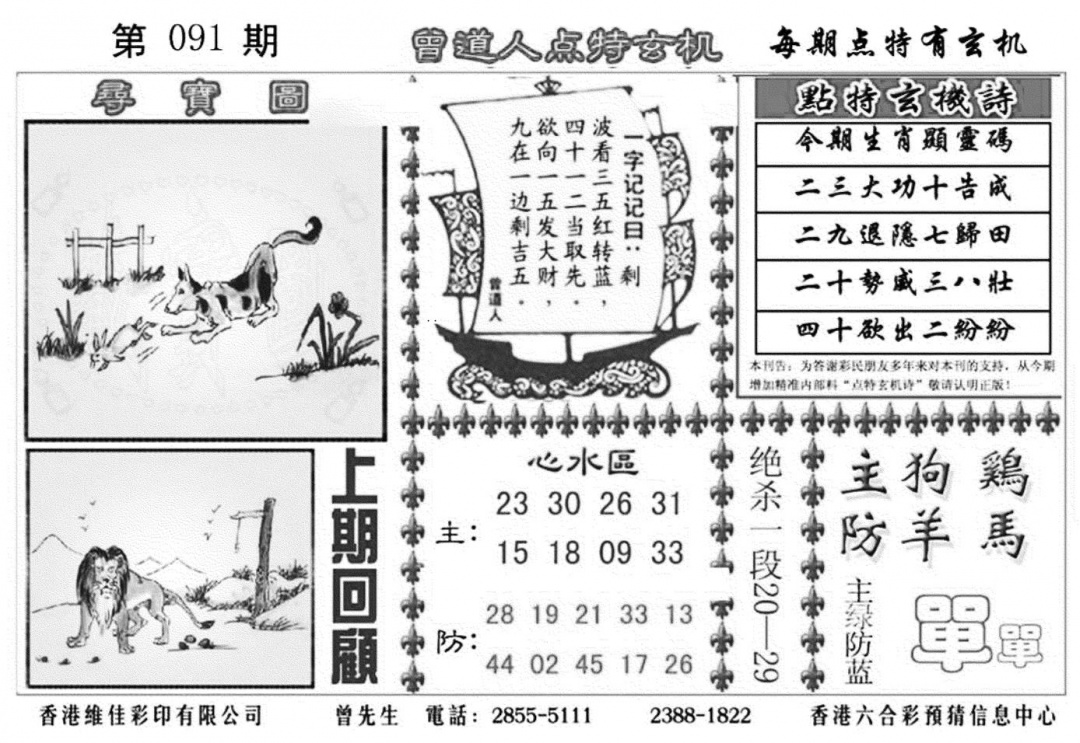 第 091 期
曾道人点特玄机
每期点特有玄机
尋寶圖
一字记记曰：剩
波看三五红转蓝，
四十一二当取先。
欲向一五发大财，
九在一边剩吉五。
曾道人
點特玄機詩
今期生肖顯靈碼
二三大功十告成
二九退隱七歸田
二十勢威三八壯
四十欲出二紛紛
本刊告：为答谢彩民朋友多年来对本刊的支持，从今期
增加精准内部料“点特玄机诗”敬请认明正版！
上期回顧
心水區
主：
23 30 26 31
15 18 09 33
防：
28 19 21 33 13
44 02 45 17 26
绝杀一段20—29
主狗鷄
防羊馬
主绿防蓝
單單
香港維佳彩印有限公司
曾先生
電話：2855-5111
2388-1822
香港六合彩预猜信息中心